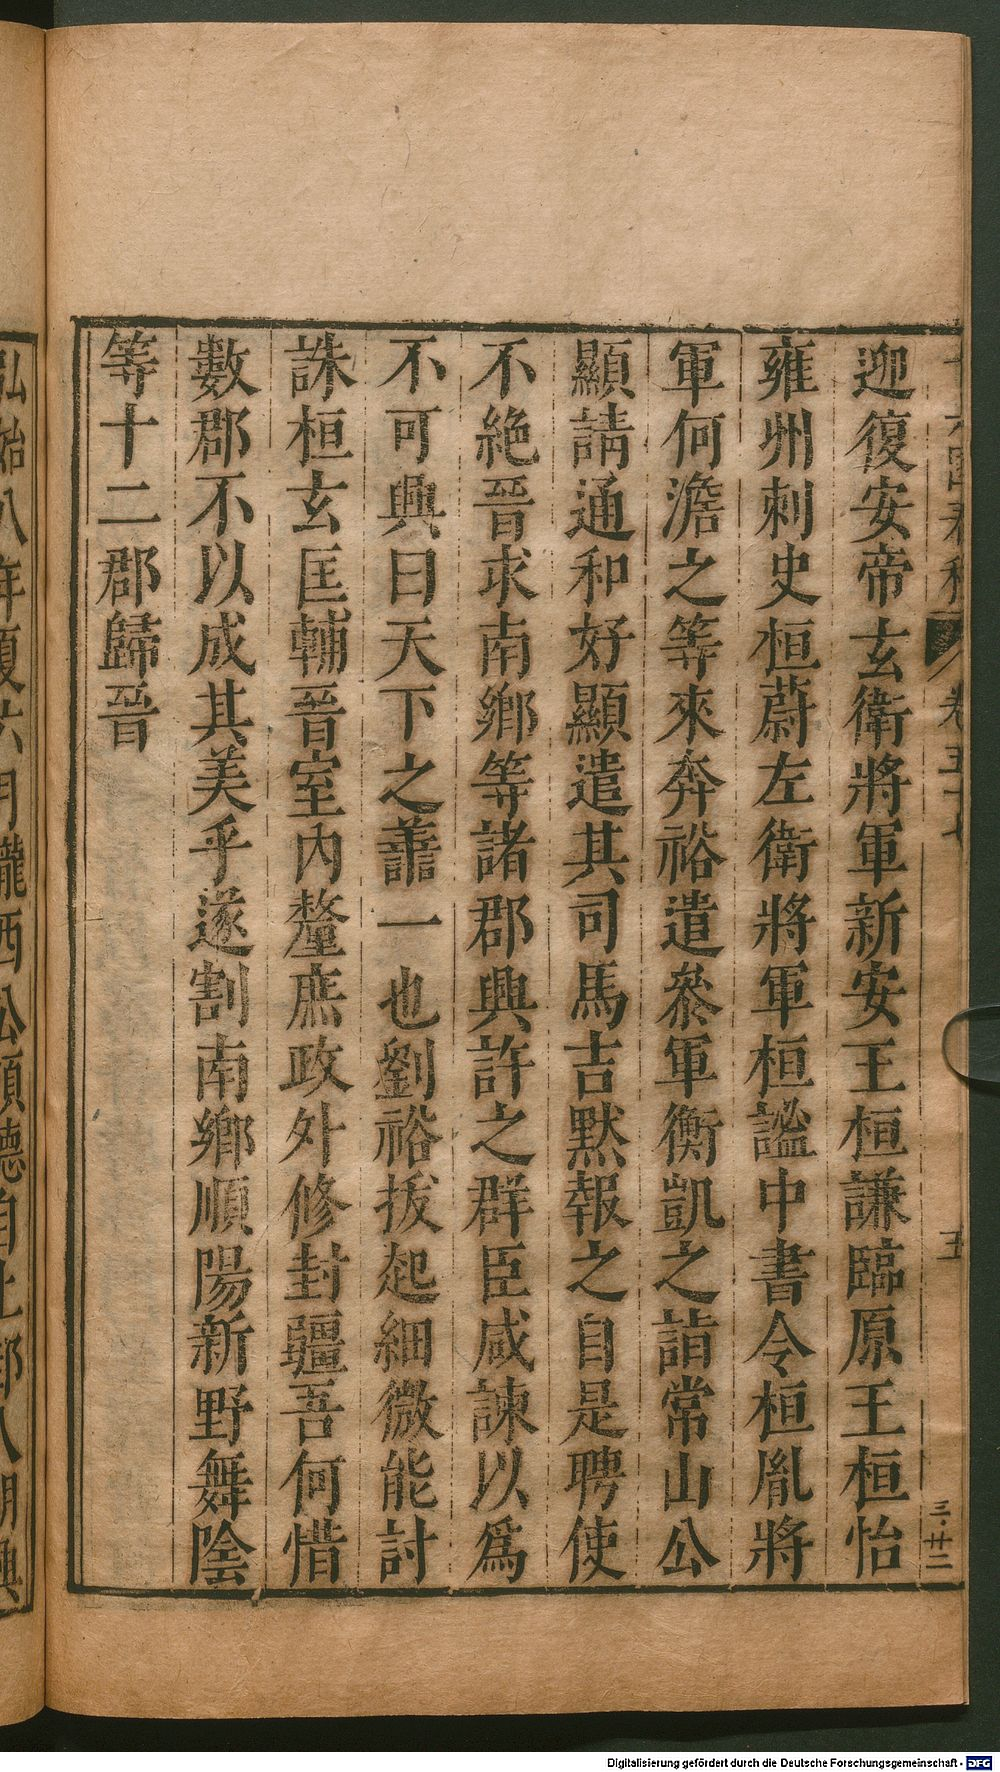 迎復安帝玄衛將軍新安王桓謙臨原王桓怡
雍州刺史桓蔚左衛將軍桓謐中書令桓胤將
軍何澹之等來奔裕遣叅軍衡凱之詣常山公
顯請通和好顯遣其司馬吉默報之自是聘使
不絶晉求南鄉等諸郡興許之群臣咸諫以爲
不可興曰天下之譱一也劉裕拔起細微能討
誅桓玄匡輔晉室內釐庶政外修封疆吾何惜
數郡不以成其美乎遂割南鄉順陽新野舞陰
等十二郡歸晉
卷五十七
五
三·廿二
弘始八年夏六月隴西公碩德自上邽入朝興
Digitalisierung gefördert durch die Deutsche Forschungsgemeinschaft - DFG